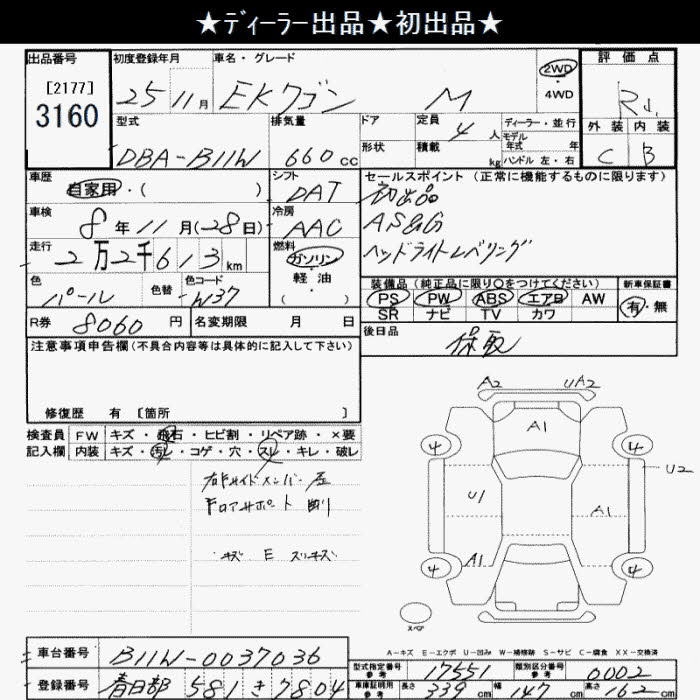 ★ディーラー出品★初出品★
出品番号 初度登録年月 車名・グレード 2WD ・4WD 評価点
[2177]
3160
25 11月 EKワゴン M
型式 排気量 ドア 定員 4人 ディーラー・並行
形状 積載 kg モデル年式 年 ハンドル 左・右
外装 内装
C B
DBA-B11W 660cc
車歴 自家用・( ) シフト DAT
セールスポイント (正常に機能するものに限ります)
初出品
AS&G
ヘッドライトレベリング
車検 8年11月(28日) 冷房 AAC
走行 2万2千613km 燃料 ガソリン 軽油 ・( )
色 パール 色替 色コード W37
装備品 (純正品に限り○をつけてください) 新車保証書
PS PW ABS エアB AW 有・無
SR ナビ TV カワ
R券 8060円 名変期限 月 日
後日品 保取
注意事項申告欄(不具合内容等は具体的に記入して下さい)
修復歴 有 [箇所 ]
検査員 FW キズ・飛石・ヒビ割・リペア跡・×要
記入欄 内装 キズ・汚レ・コゲ・穴・スレ・キレ・破レ
キズ E スリキズ
A2 UA2
A1
4 4
U2
U1 A1
A1
4 4
スペア
A-キズ E-エクボ U-凹み W-補修跡 S-サビ C-腐食 XX-交換済
車台番号 B11W-0037036
型式指定番号 参考 17551 類別区分番号 参考 0002
登録番号 春日部 581 き 7804
車庫証明用 参考 長さ 339cm 幅 147cm 高さ 162cm